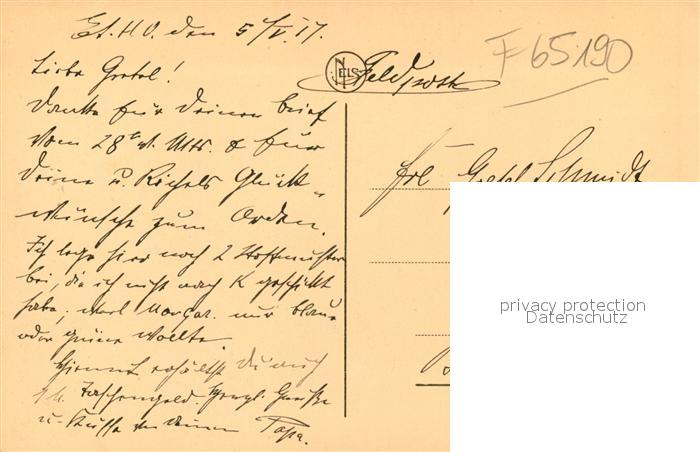 Et. H. O. den 5/V. 17.
Liebe Gretel!
Danke für Deinen Brief
vom 28t v. Mts. & für
Deine u. Richels Glück-
wünsche zum Orden.
Ich lege hier noch 2 Stoffmuster
bei, die ich nicht nach K geschickt
habe, weil Margar. nur blaue
oder grüne wollte.
Hiermit erhältst Du auch
Taschengeld. Herzl. Grüße
u. Küsse von Deinem Papa.
NELS
Feldpost
F 65190
Frl Gretel Schmidt
privacy protection
Datenschutz